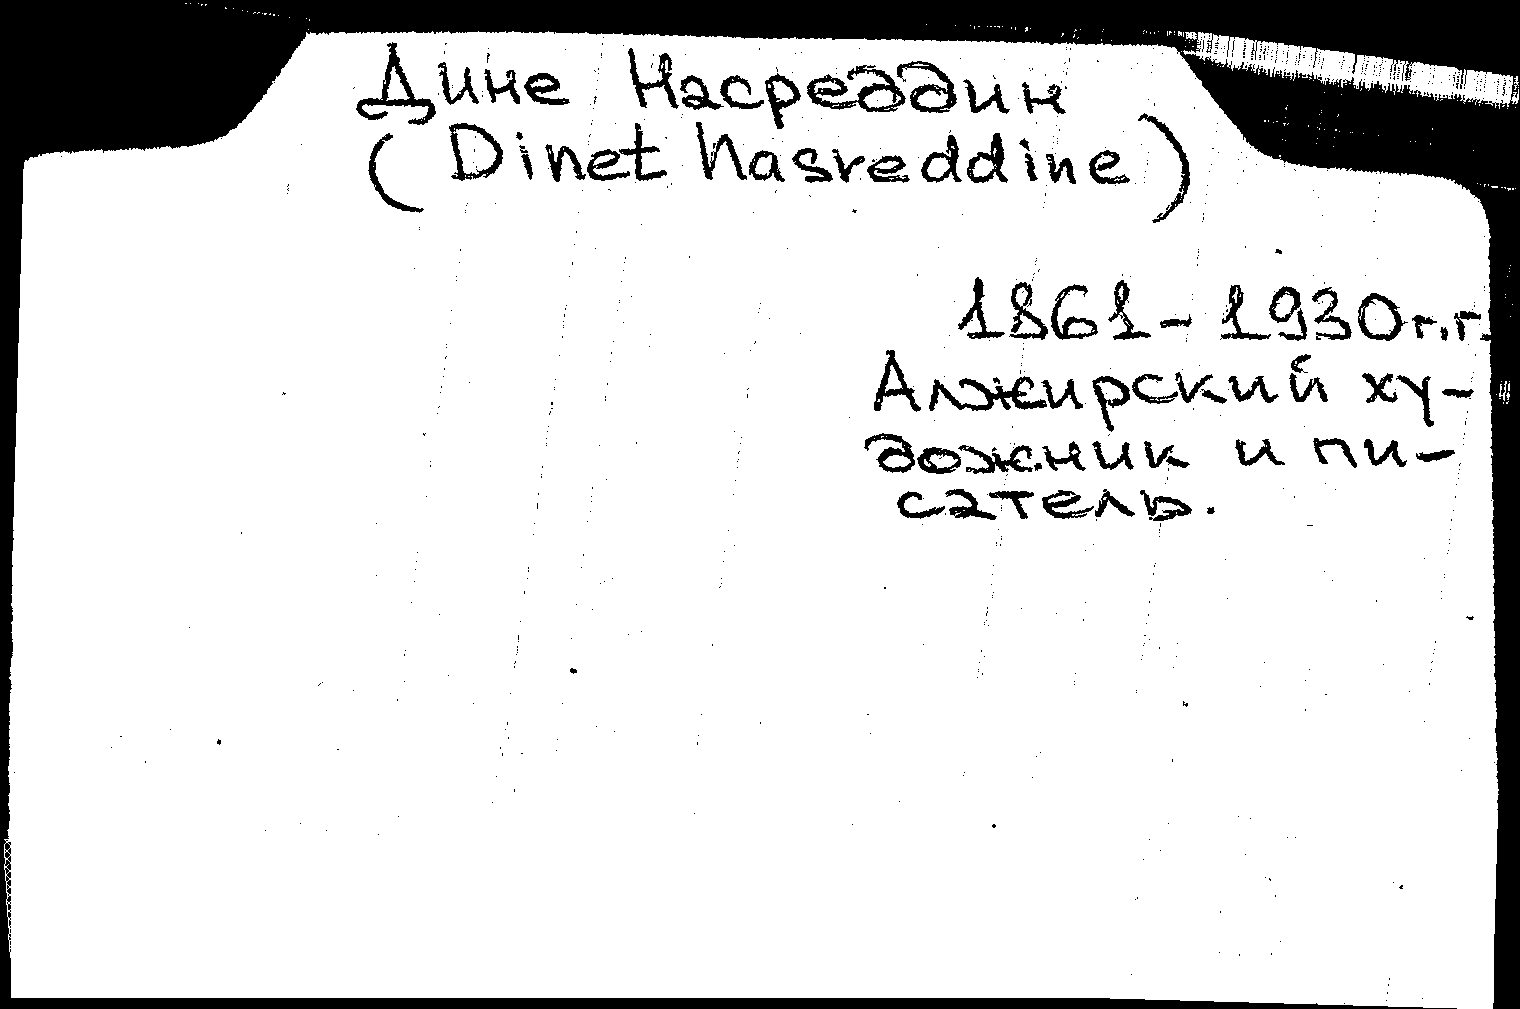 Дине Насреддин
(Dinet Nasreddine)
1861-1930г.г.
Алжирский ху-
дожник и пи-
сатель.